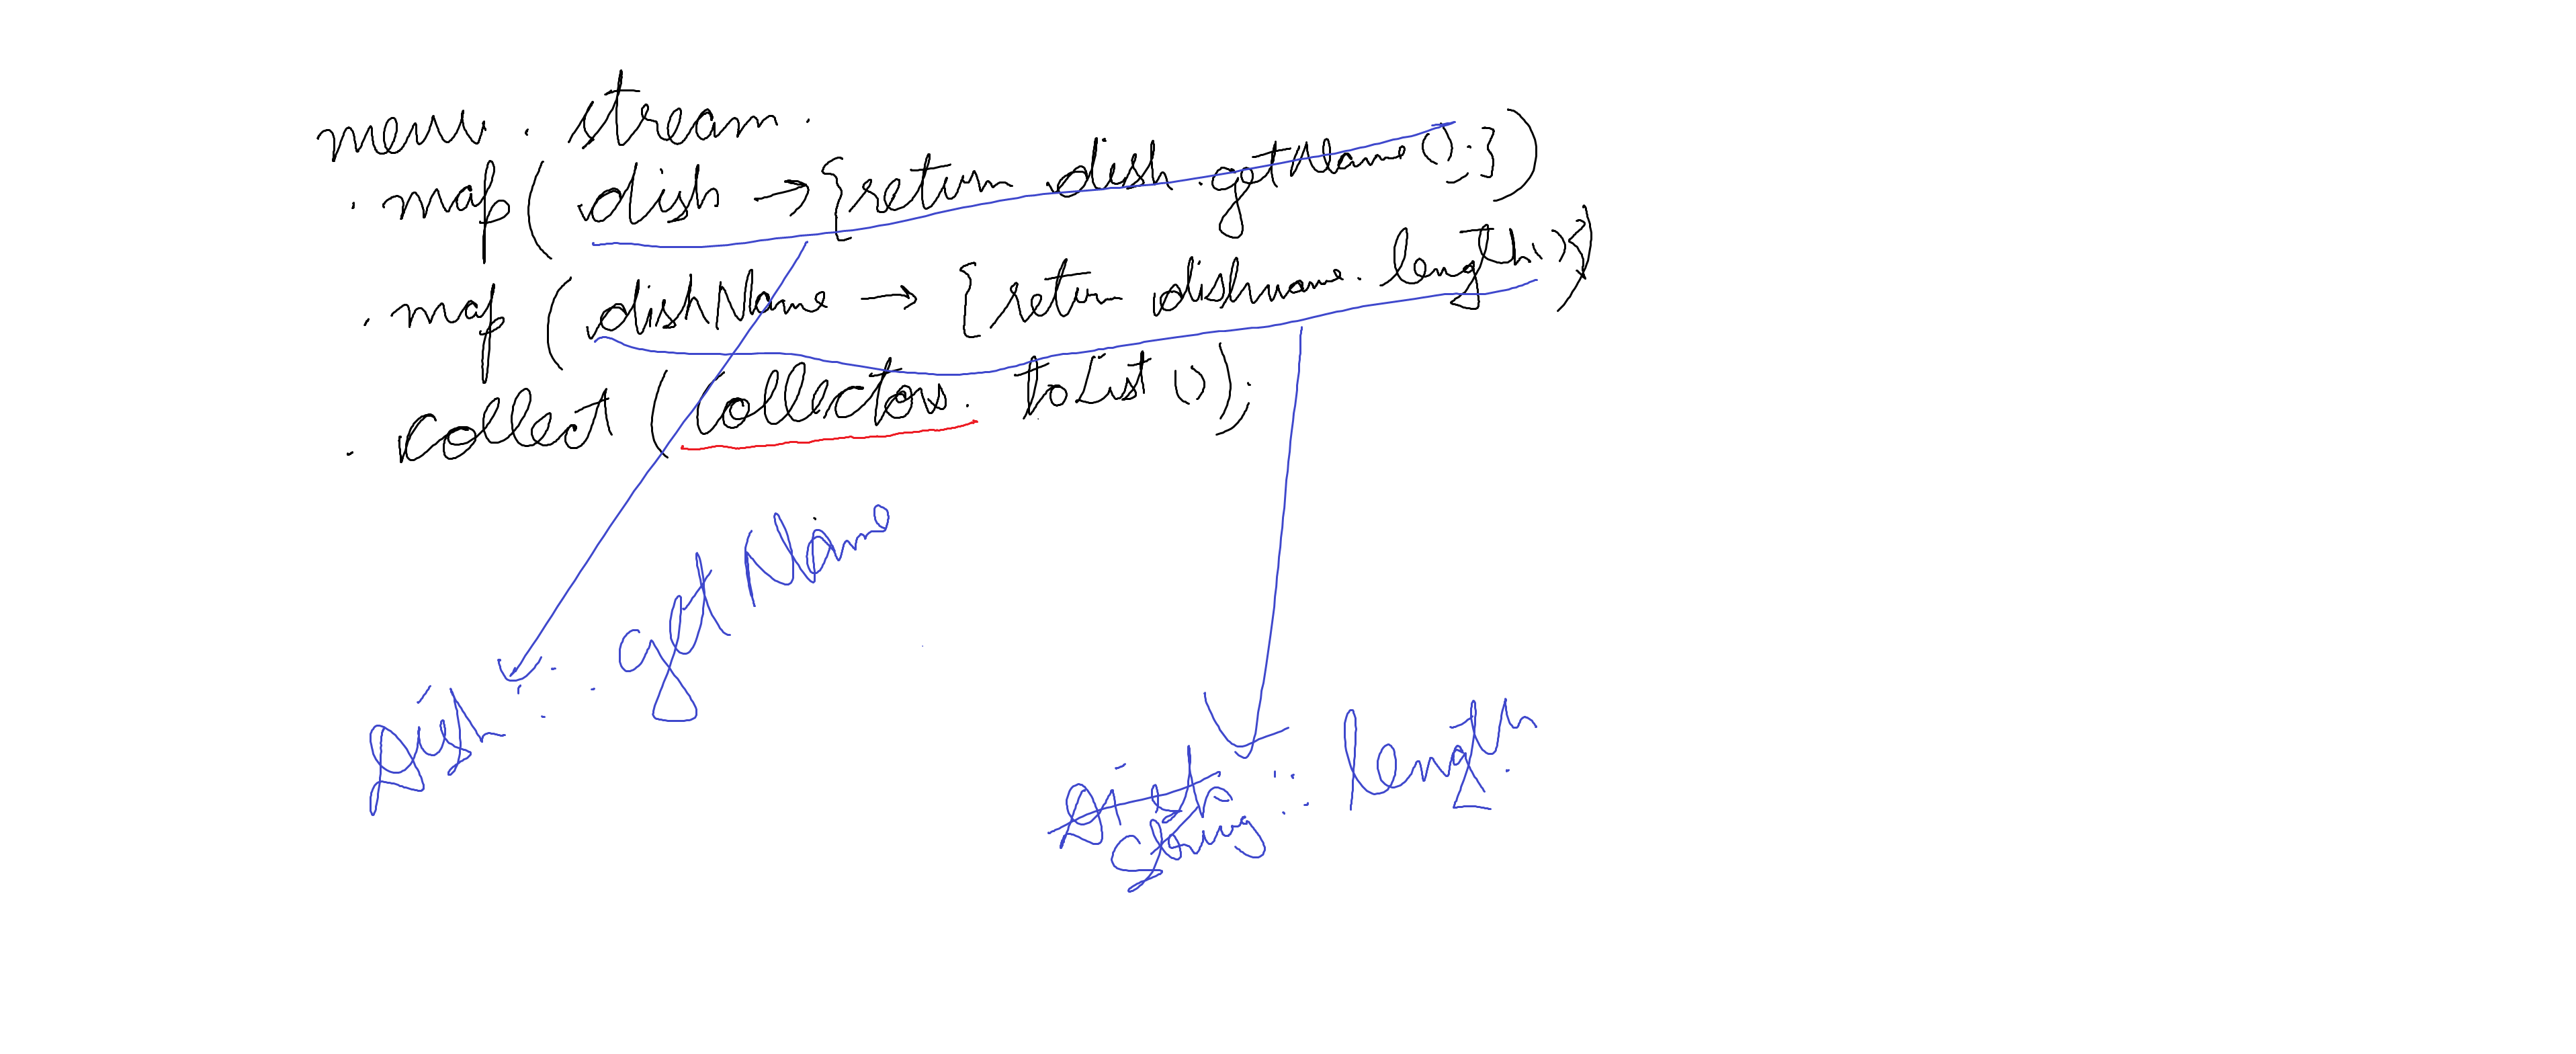 menu . stream .
. map ( dish → {return dish.getName();})
. map ( dishName → {return dishname.length()})
. collect (Collectors. toList ());
Dish :: getName
Dish
String :: length